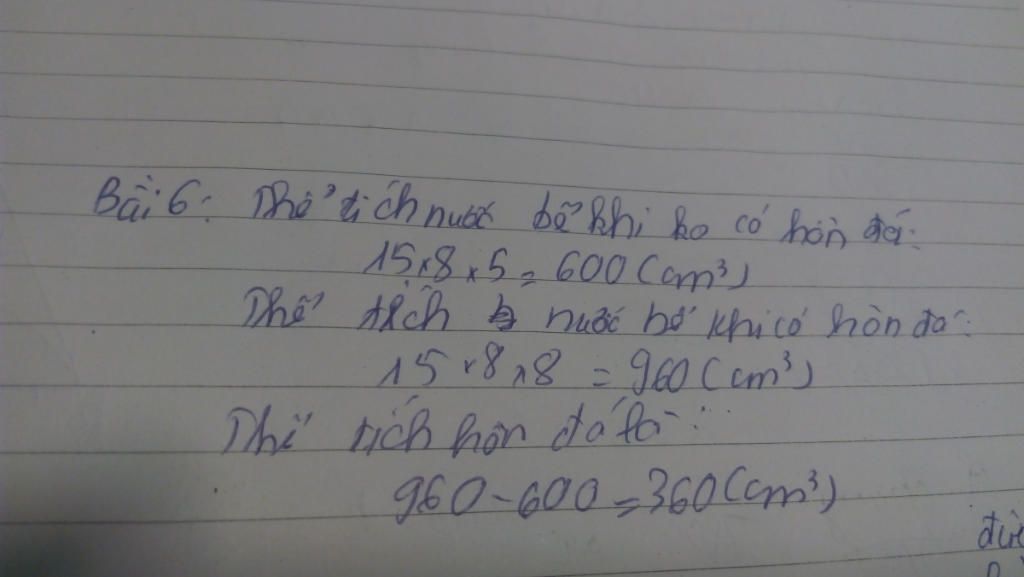 Bài 6: Thể tích nước bể khi ko có hòn đá:
15 x 8 x 5 = 600 (cm³)
Thể tích nước bể khi có hòn đá:
15 x 8 x 8 = 960 (cm³)
Thể tích hòn đá là:
960 - 600 = 360 (cm³)